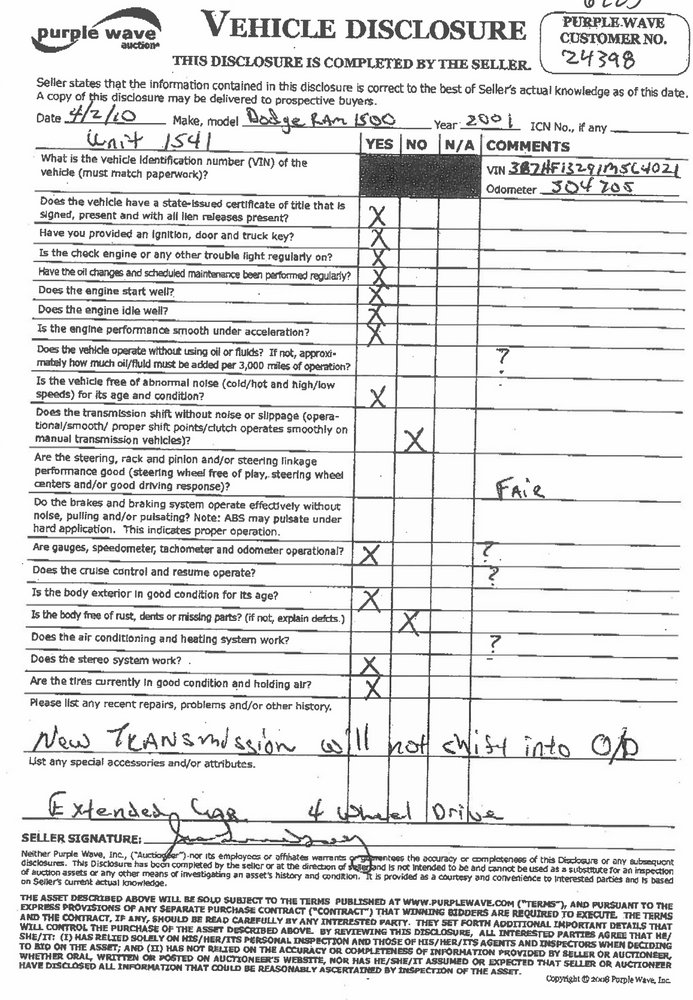 purple wave
auction®
VEHICLE DISCLOSURE
PURPLE WAVE
CUSTOMER NO.
24398
THIS DISCLOSURE IS COMPLETED BY THE SELLER.
Seller states that the information contained in this disclosure is correct to the best of Seller's actual knowledge as of this date.
A copy of this disclosure may be delivered to prospective buyers.
Date 4/2/10 Make, model Dodge RAM 1500 Year 2001 ICN No., if any
Unit 1541
YES NO N/A COMMENTS
What is the vehicle identification number (VIN) of the
vehicle (must match paperwork)?
VIN 3B7HF13Z91M5C4021
Odometer 304705
Does the vehicle have a state-issued certificate of title that is
signed, present and with all lien releases present? X
Have you provided an ignition, door and truck key? X
Is the check engine or any other trouble light regularly on? X
Have the oil changes and scheduled maintenance been performed regularly? X
Does the engine start well? X
Does the engine idle well? X
Is the engine performance smooth under acceleration? X
Does the vehicle operate without using oil or fluids? If not, approxi-
mately how much oil/fluid must be added per 3,000 miles of operation? ?
Is the vehicle free of abnormal noise (cold/hot and high/low
speeds) for its age and condition? X
Does the transmission shift without noise or slippage (opera-
tional/smooth/ proper shift points/clutch operates smoothly on
manual transmission vehicles)? X
Are the steering, rack and pinion and/or steering linkage
performance good (steering wheel free of play, steering wheel
centers and/or good driving response)? FAIR
Do the brakes and braking system operate effectively without
noise, pulling and/or pulsating? Note: ABS may pulsate under
hard application. This indicates proper operation.
Are gauges, speedometer, tachometer and odometer operational? X ?
Does the cruise control and resume operate? ?
Is the body exterior in good condition for its age? X
Is the body free of rust, dents or missing parts? (if not, explain defcts.) X
Does the air conditioning and heating system work? ?
Does the stereo system work? X
Are the tires currently in good condition and holding air? X
Please list any recent repairs, problems and/or other history.
New TRANSmission will not shift into O/D
List any special accessories and/or attributes.
Extended CAB 4 Wheel Drive
SELLER SIGNATURE:
Neither Purple Wave, Inc., ("Auctioneer") nor its employees or affiliates warrants or guarantees the accuracy or completeness of this Disclosure or any subsequent
disclosures. This Disclosure has been completed by the seller or at the direction of seller and is not intended to be and cannot be used as a substitute for an inspection
of auction assets or any other means of investigating an asset's history and condition. It is provided as a courtesy and convenience to interested parties and is based
on Seller's current actual knowledge.
THE ASSET DESCRIBED ABOVE WILL BE SOLD SUBJECT TO THE TERMS PUBLISHED AT WWW.PURPLEWAVE.COM ("TERMS"), AND PURSUANT TO THE
EXPRESS PROVISIONS OF ANY SEPARATE PURCHASE CONTRACT ("CONTRACT") THAT WINNING BIDDERS ARE REQUIRED TO EXECUTE. THE TERMS
AND THE CONTRACT, IF ANY, SHOULD BE READ CAREFULLY BY ANY INTERESTED PARTY. THEY SET FORTH ADDITIONAL IMPORTANT DETAILS THAT
WILL CONTROL THE PURCHASE OF THE ASSET DESCRIBED ABOVE. BY REVIEWING THIS DISCLOSURE, ALL INTERESTED PARTIES AGREE THAT HE/
SHE/IT: (I) HAS RELIED SOLELY ON HIS/HER/ITS PERSONAL INSPECTION AND THOSE OF HIS/HER/ITS AGENTS AND INSPECTORS WHEN DECIDING
TO BID ON THE ASSET; AND (II) HAS NOT RELIED ON THE ACCURACY OR COMPLETENESS OF INFORMATION PROVIDED BY SELLER OR AUCTIONEER,
WHETHER ORAL, WRITTEN OR POSTED ON AUCTIONEER'S WEBSITE, NOR HAS HE/SHE/IT ASSUMED OR EXPECTED THAT SELLER OR AUCTIONEER
HAVE DISCLOSED ALL INFORMATION THAT COULD BE REASONABLY ASCERTAINED BY INSPECTION OF THE ASSET.
Copyright © 2008 Purple Wave, Inc.